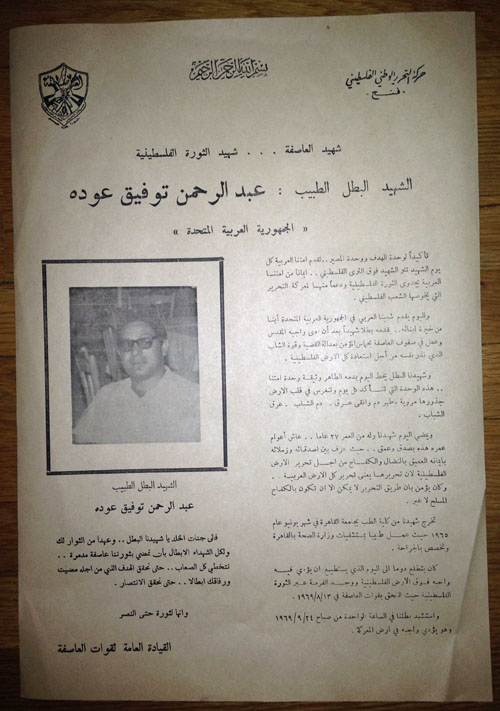 بسم الله الرحمن الرحيم
حركة التحرير الوطني الفلسطيني
- فتح -
شهيد العاصفة . . . شهيد الثورة الفلسطينية
الشهيد البطل الطبيب : عبد الرحمن توفيق عوده
« الجمهورية العربية المتحدة »
تأكيداً لوحدة الهدف ووحدة المصير .. تقدم امتنا العربية كل
يوم الشهيد تلو الشهيد فوق الثرى الفلسطيني .. ايماناً من امتنا
العربية بجدوى الثورة الفلسطينية ودعماً منها لمعركة التحرير
التي يخوضها الشعب الفلسطيني .
واليوم يقدم شعبنا العربي في الجمهورية العربية المتحدة أبناً
من خيرة ابنائه .. يقدمه بطلا شهيداً بعد أن أدى واجبه المقدس
وعمل في صفوف العاصفة بحماس المؤمن بعدالة القضية وقوة الشباب
الذي نذر نفسه من أجل استعادة كل الارض الفلسطينية .
وشهيدنا البطل يخط اليوم بدمه الطاهر وثيقة وحدة امتنا
.. هذه الوحدة التي تتأكد كل يوم وتنغرس في قلب الارض
جذورها مروية بأطهر دم وانقى عرق .. دم الشباب .. عرق
الشباب .
ويمضي اليوم شهيدنا وله من العمر ٢٧ عاما .. عاش أعوام
عمره هذه بصدق وعمق .. حيث عرف بين اصدقائه وزملائه
بايمانه العميق بالنضال والكفاح من اجل تحرير الارض
الفلسطينية لان تحريرها يعني تحرير كل الارض العربية ..
وكان يؤمن بان طريق التحرير لا يمكن الا ان تكون بالكفاح
المسلح لا غير .
تخرج شهيدنا من كلية الطب بجامعة القاهرة في شهر يونيو عام
١٩٦٥ حيث عمل طبيبا بمستشفيات وزارة الصحة بالقاهرة
وتخصص بالجراحة .
كان يتطلع دوما الى اليوم الذي يستطيع ان يؤدي فيه
واجبه فوق الارض الفلسطينية ووجد الفرصة عبر الثورة
الفلسطينية حيث التحق بقوات العاصفة في ١٩٦٩/٨/١٣ .
واستشهد بطلنا في الساعة الواحدة من صباح ١٩٦٩/٩/٢٤
وهو يؤدي واجبه في ارض المعركة .
الشهيد البطل الطبيب
عبد الرحمن توفيق عوده
فالى جنات الخلد يا شهيدنا البطل .. وعهداً من الثوار لك
ولكل الشهداء الابطال بأن تمضي بثورتنا عاصفة مدمرة ..
تتخطى كل الصعاب .. حتى تحقق الهدف الذي من اجله مضيت
ورفاقك ابطالا .. حتى تحقق الانتصار .
وانها لثورة حتى النصر
القيادة العامة لقوات العاصفة